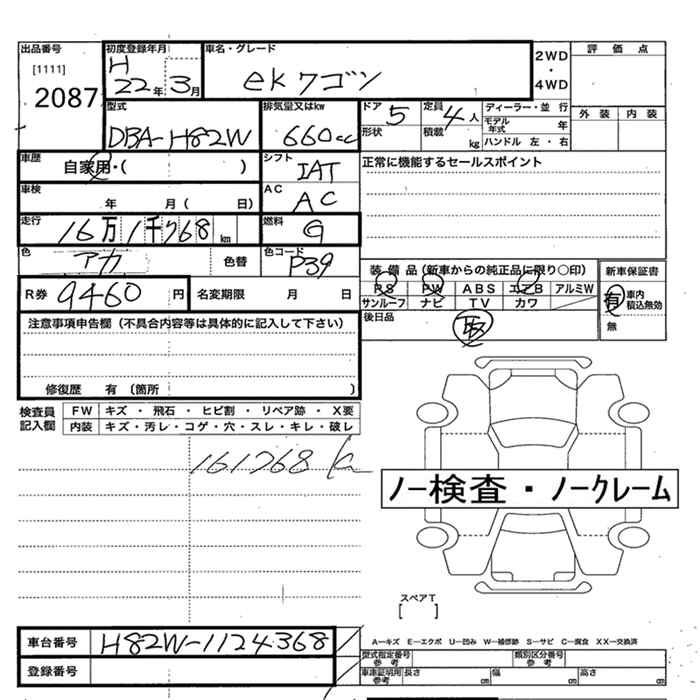 出品番号 初度登録年月 車名・グレード 2WD・4WD 評価点
[1111] H
2087 22年 3月 ekワゴン
型式 排気量又はkw ドア 5 定員 4人 ディーラー・並行 外装 内装
DBA-H82W 660cc 形状 積載 kg モデル年式 年
ハンドル 左・右
車歴 自家用・( ) シフト IAT 正常に機能するセールスポイント
車検 年 月( 日) AC AC
走行 16万1千768km 燃料 G
色 アカ 色替 色コード P39
装備品(新車からの純正品に限り○印) 新車保証書
R券 9460円 名変期限 月 日 PS PW ABS エアB アルミW 有 車内積込無効
サンルーフ ナビ TV カワ 無
注意事項申告欄(不具合内容等は具体的に記入して下さい) 後日品 取
修復歴 有 〔箇所 〕
検査員記入欄 FW キズ・飛石・ヒビ割・リペア跡・X要
内装 キズ・汚レ・コゲ・穴・スレ・キレ・破レ
161768
ノー検査・ノークレーム
スペアT
[ ]
車台番号 H82W-1124368 A−キズ E−エクボ U−凹み W−補修跡 S−サビ C−腐食 XX−交換済
登録番号 型式指定番号 参考 類別区分番号 参考
車庫証明用 参考 長さ cm 幅 cm 高さ cm